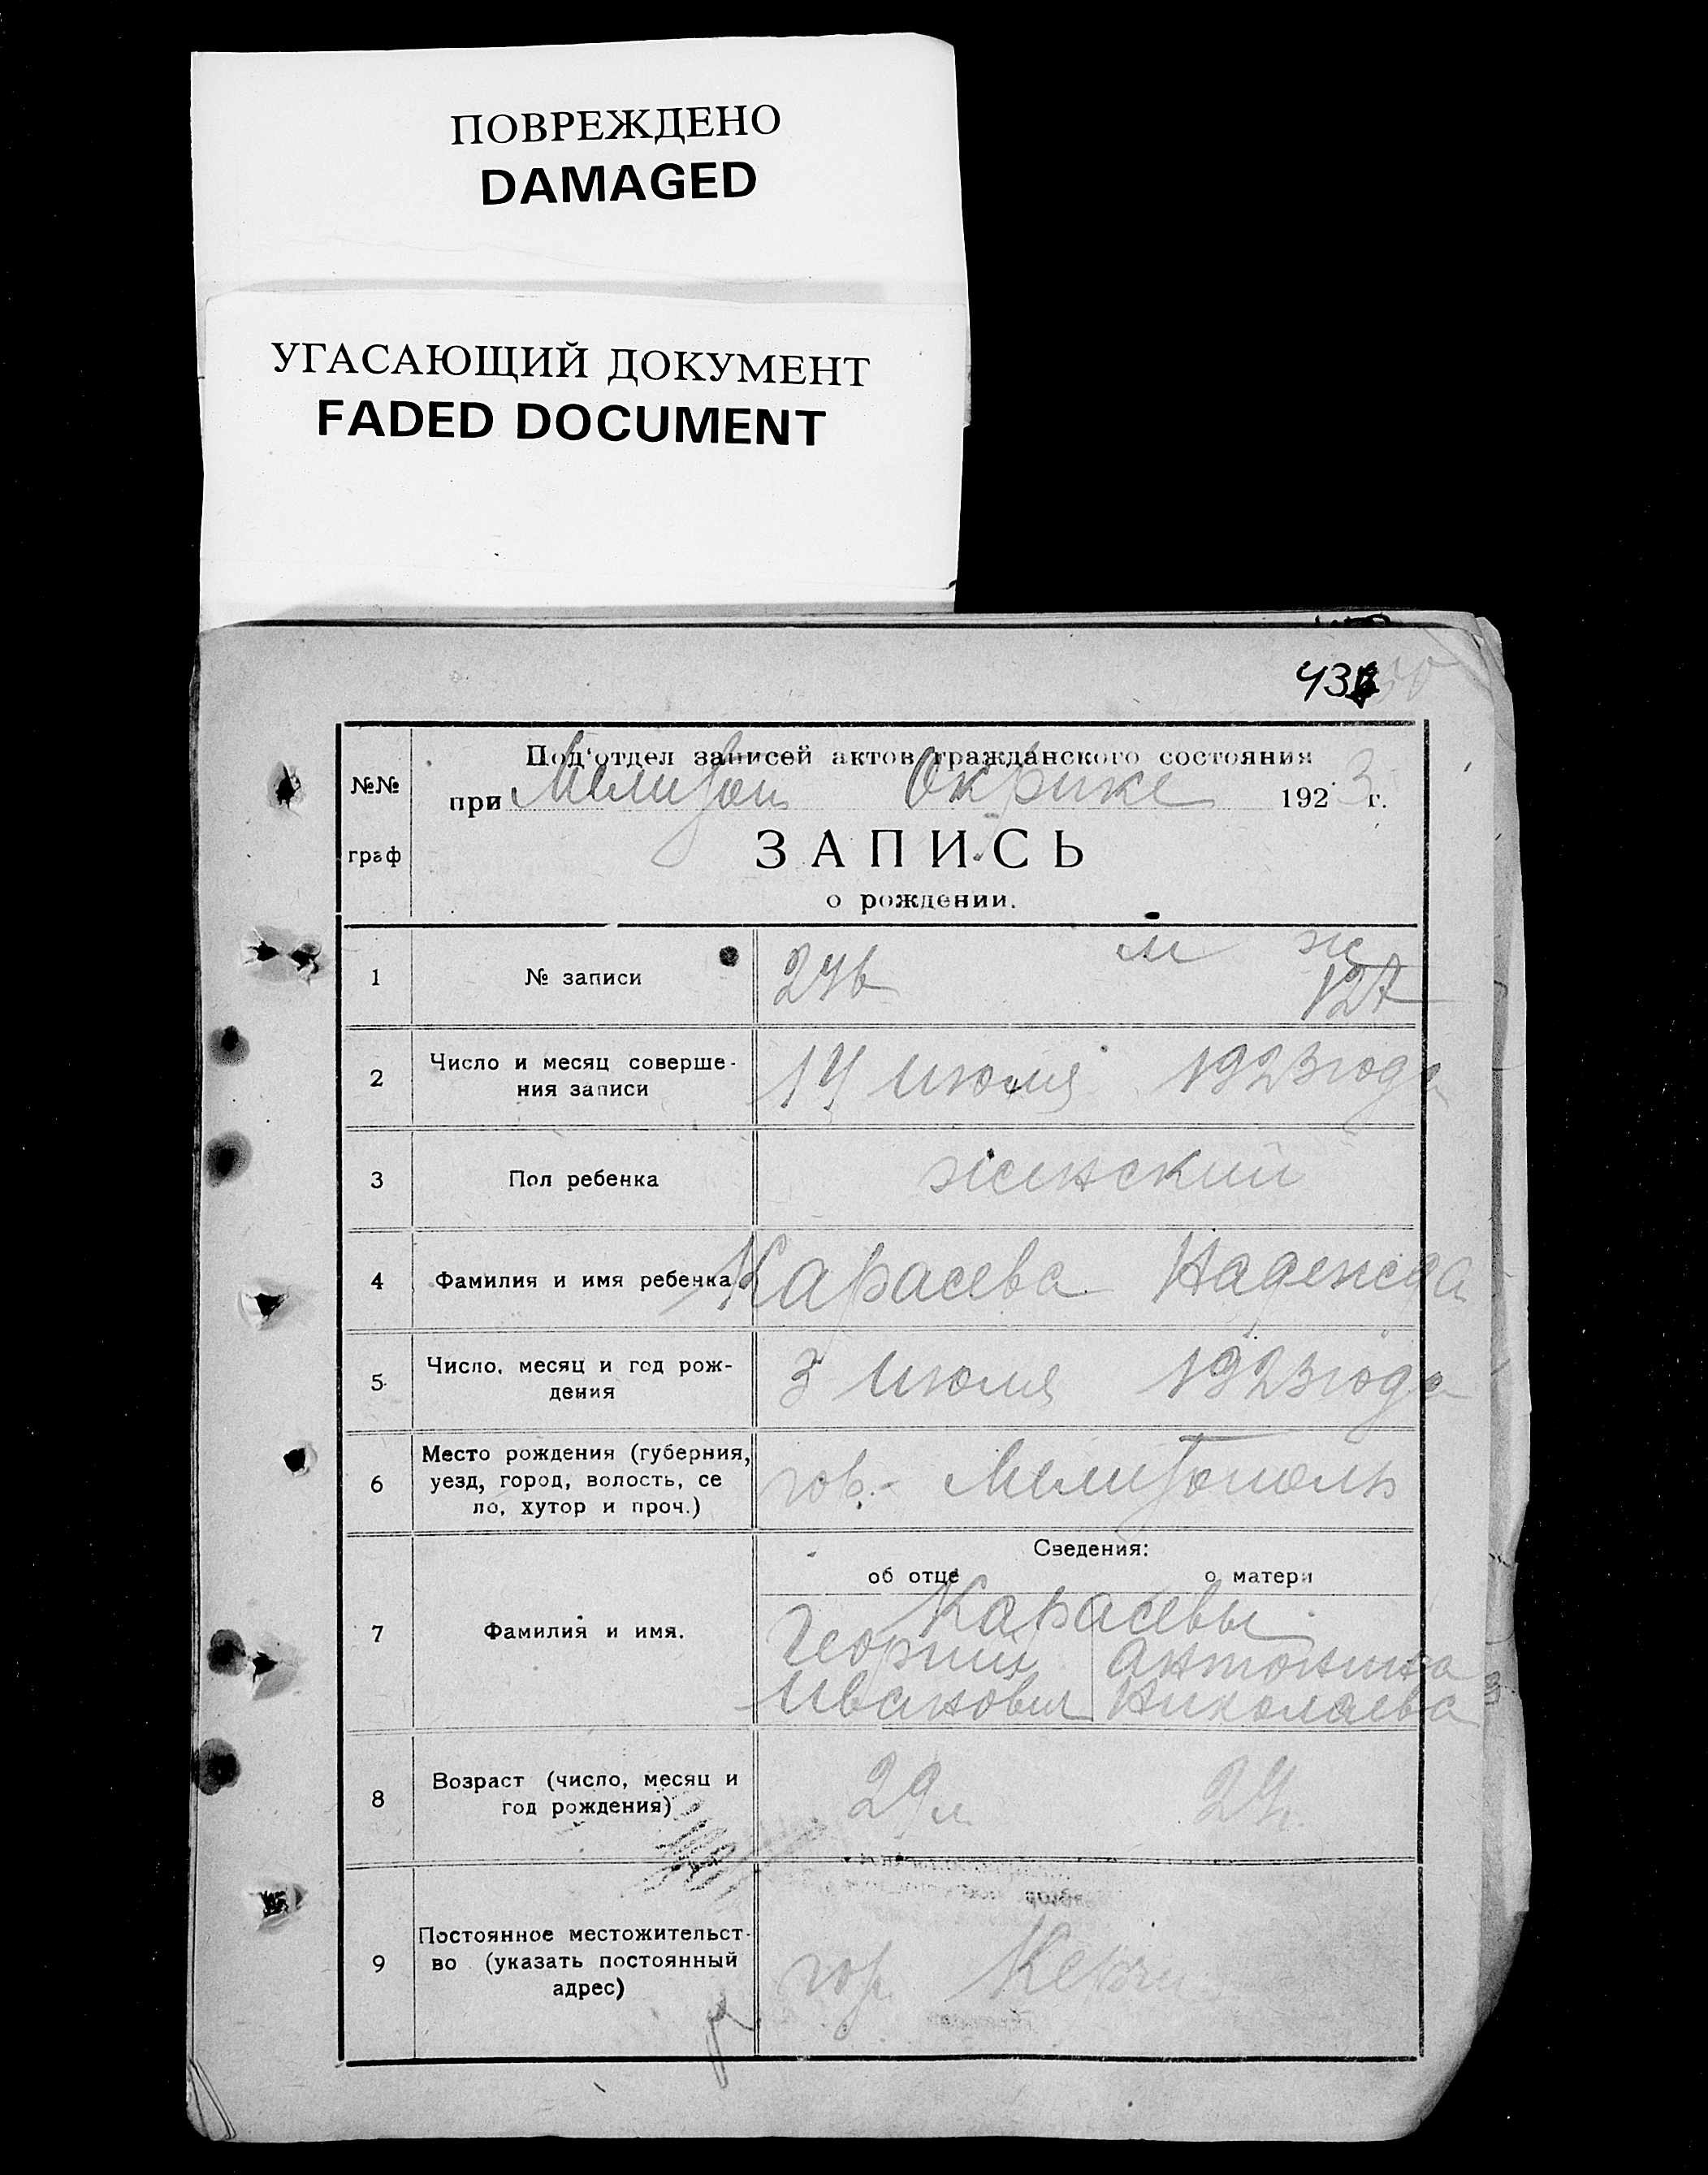 ПОВРЕЖДЕНО
DAMAGED
УГАСАЮЩИЙ ДОКУМЕНТ
FADED DOCUMENT
43
№№ граф
Под'отдел записей актов гражданского состояния
при Мелитоп Окрике 1923 г.
ЗАПИСЬ
о рождении.
м ж
1 № записи 246 127
2 Число и месяц соверше-
ния записи 14 июля 1923 года
3 Пол ребенка женский
4 Фамилия и имя ребенка Карасева Надежда
5 Число, месяц и год рож-
дения 3 июля 1923 года
6 Место рождения (губерния,
уезд, город, волость, се
ло, хутор и проч.) гор. Мелитополь
Сведения:
об отце о матери
Карасевы
7 Фамилия и имя. Георгий Антонина
Иванович Николаева
8 Возраст (число, месяц и
год рождения) 29 л 24
9 Постоянное местожительст-
во (указать постоянный
адрес) гор Керчь